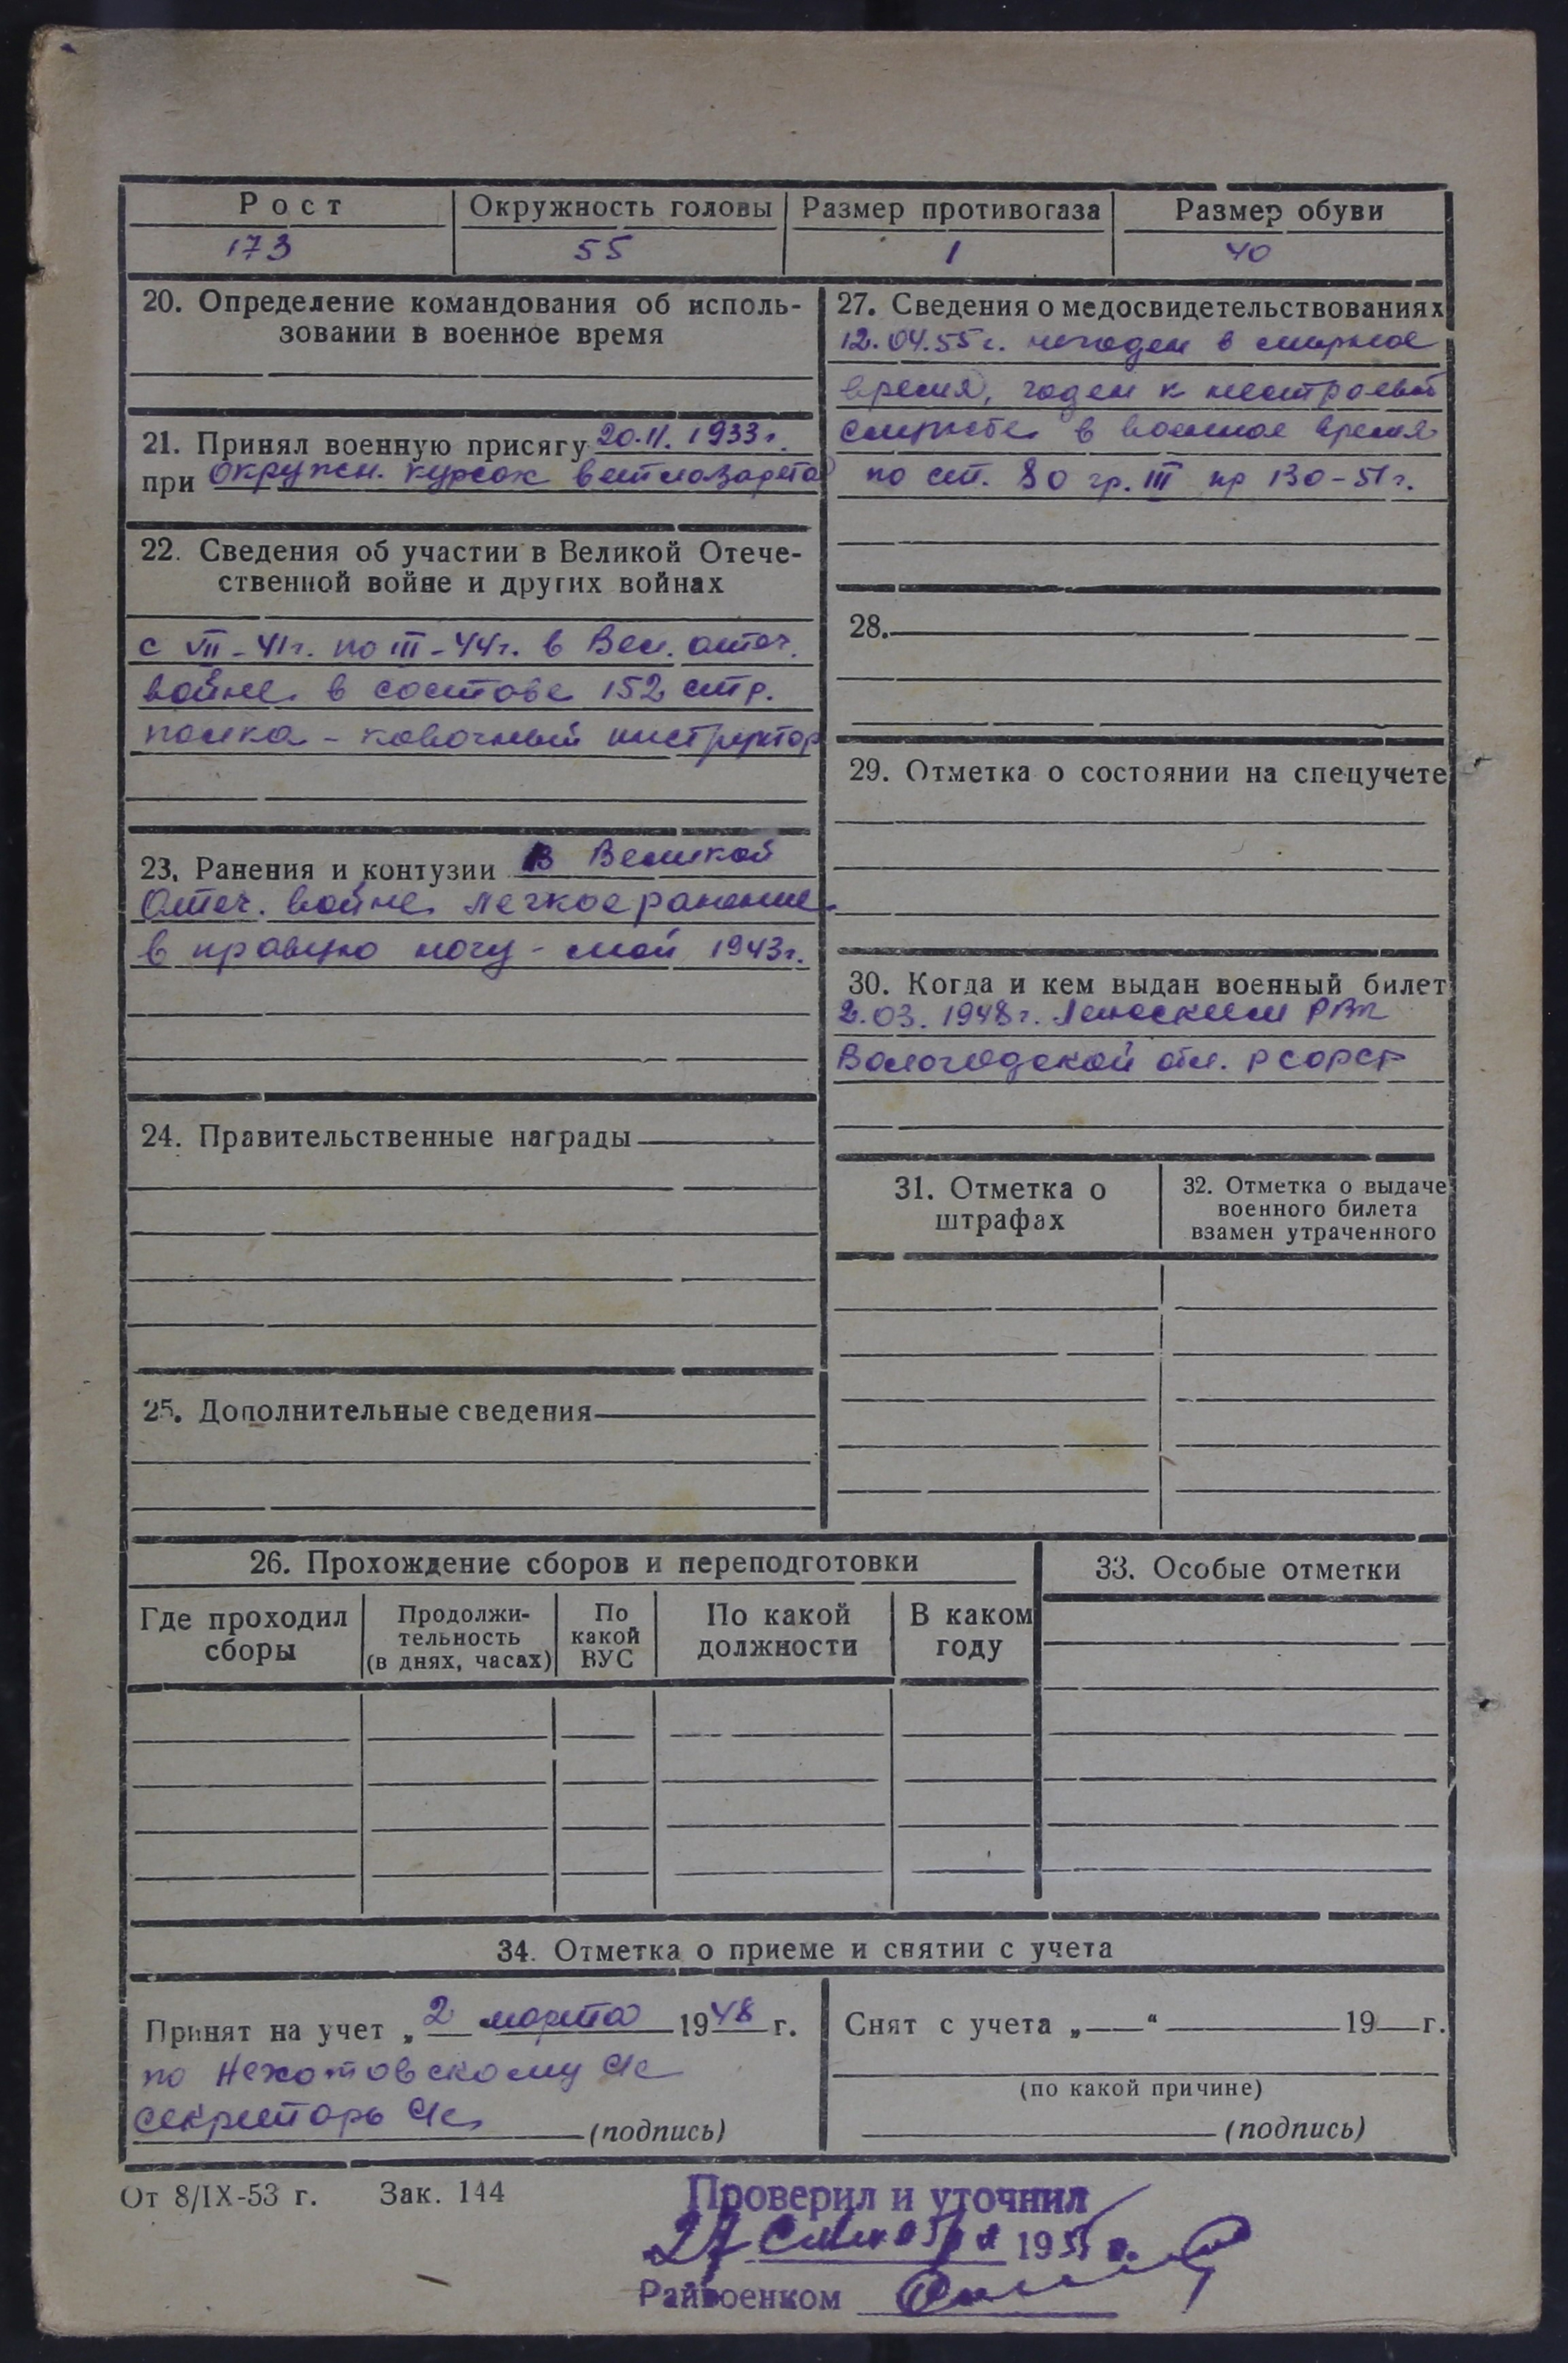 Рост
Окружность головы
Размер противогаза
Размер обуви
173
55
1
40
20. Определение командования об исполь-
зовании в военное время
21. Принял военную присягу 20.11.1933г.
при окружн. курсах ветлазарета
22. Сведения об участии в Великой Отече-
ственной войне и других войнах
с VII-41г. по III-44г. в Вел. отеч.
войне в составе 152 стр.
полка - ковочный инструктор
23. Ранения и контузии В Великой
Отеч. войне легкое ранение
в правую ногу - май 1943г.
24. Правительственные награды
25. Дополнительные сведения
27. Сведения о медосвидетельствованиях
12.04.55г. негоден в мирное
время, годен к нестроевой
службе в военное время
по ст. 80 гр. III пр 130-51г.
28.
29. Отметка о состоянии на спецучете
30. Когда и кем выдан военный билет
2.03.1948г. РВК
Вологодской обл. РСФСР
31. Отметка о
штрафах
32. Отметка о выдаче
военного билета
взамен утраченного
26. Прохождение сборов и переподготовки
Где проходил
сборы
Продолжи-
тельность
(в днях, часах)
По
какой
ВУС
По какой
должности
В каком
году
33. Особые отметки
34. Отметка о приеме и снятии с учета
Принят на учет „2 марта 1948 г.
по Нехотовскому с/с
секретарь с/с (подпись)
Снят с учета „ “ 19 г.
(по какой причине)
(подпись)
От 8/IX-53 г. Зак. 144
Проверил и уточнил
27 1955 г.
Райвоенком